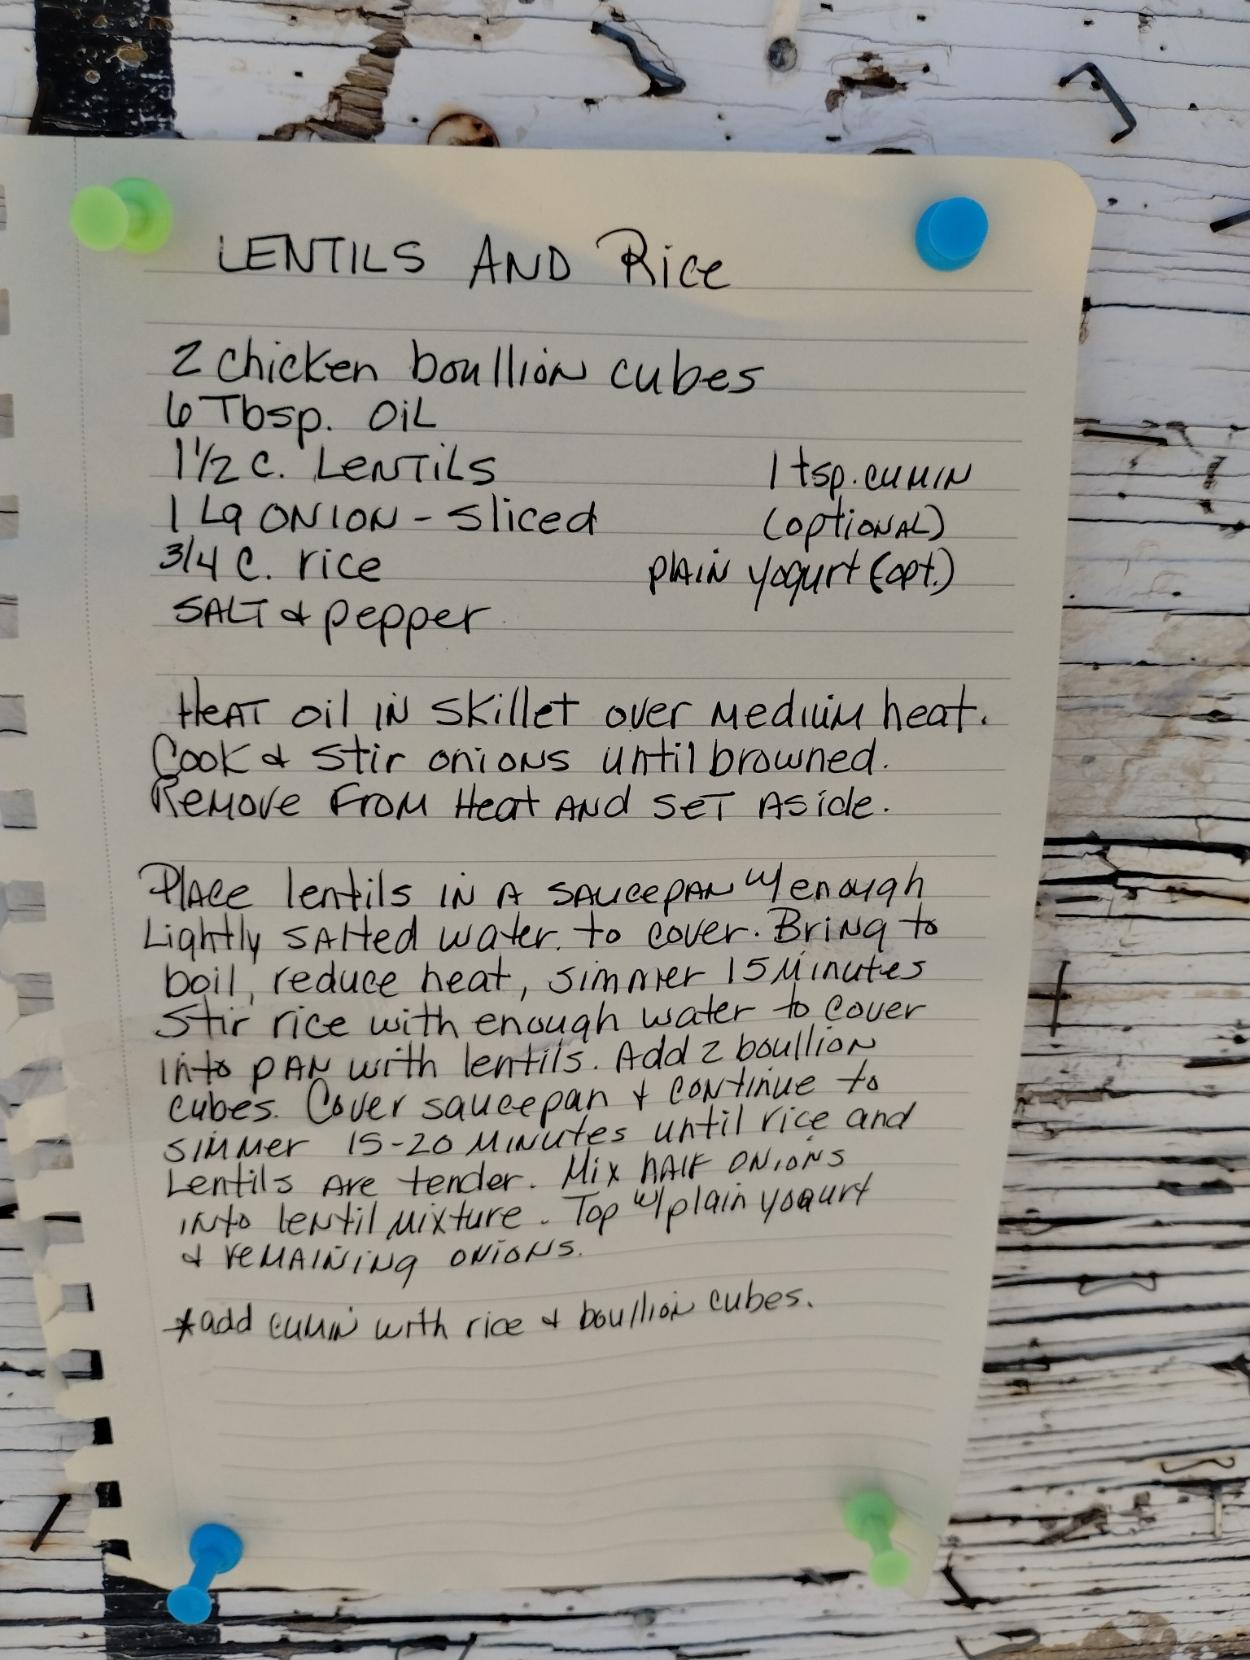 LENTILS AND Rice
2 chicken boullion cubes
6 Tbsp. OiL
1 1/2 c. LeNTiLS
1 Lg ONION - Sliced
3/4 C. rice
SALT & pepper
1 tsp. cumin
(optional)
plain yogurt (opt.)
Heat oil in Skillet over medium heat.
Cook & Stir onions until browned.
Remove From Heat AND SeT Aside.
Place lentils IN A SAUCEPAN w/ enough
Lightly SALTed water. to cover. Bring to
boil, reduce heat, simmer 15 Minutes
Stir rice with enough water to cover
into pan with lentils. Add 2 boullion
cubes. Cover saucepan & continue to
simmer 15-20 minutes until rice and
Lentils Are tender. Mix half onions
into lentil mixture. Top w/ plain yogurt
& remaining onions.
*add cumin with rice & boullion cubes.